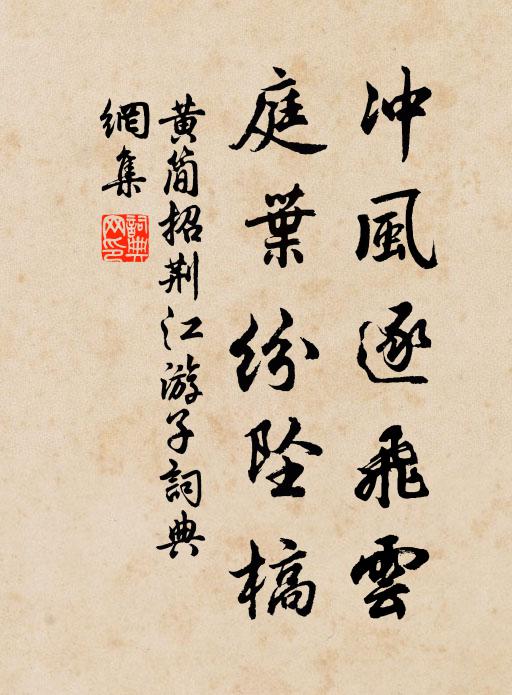 冲風逐飛雲
庭葉紛坠槁
黄简招荆江游子詞典
網集
詞典網印